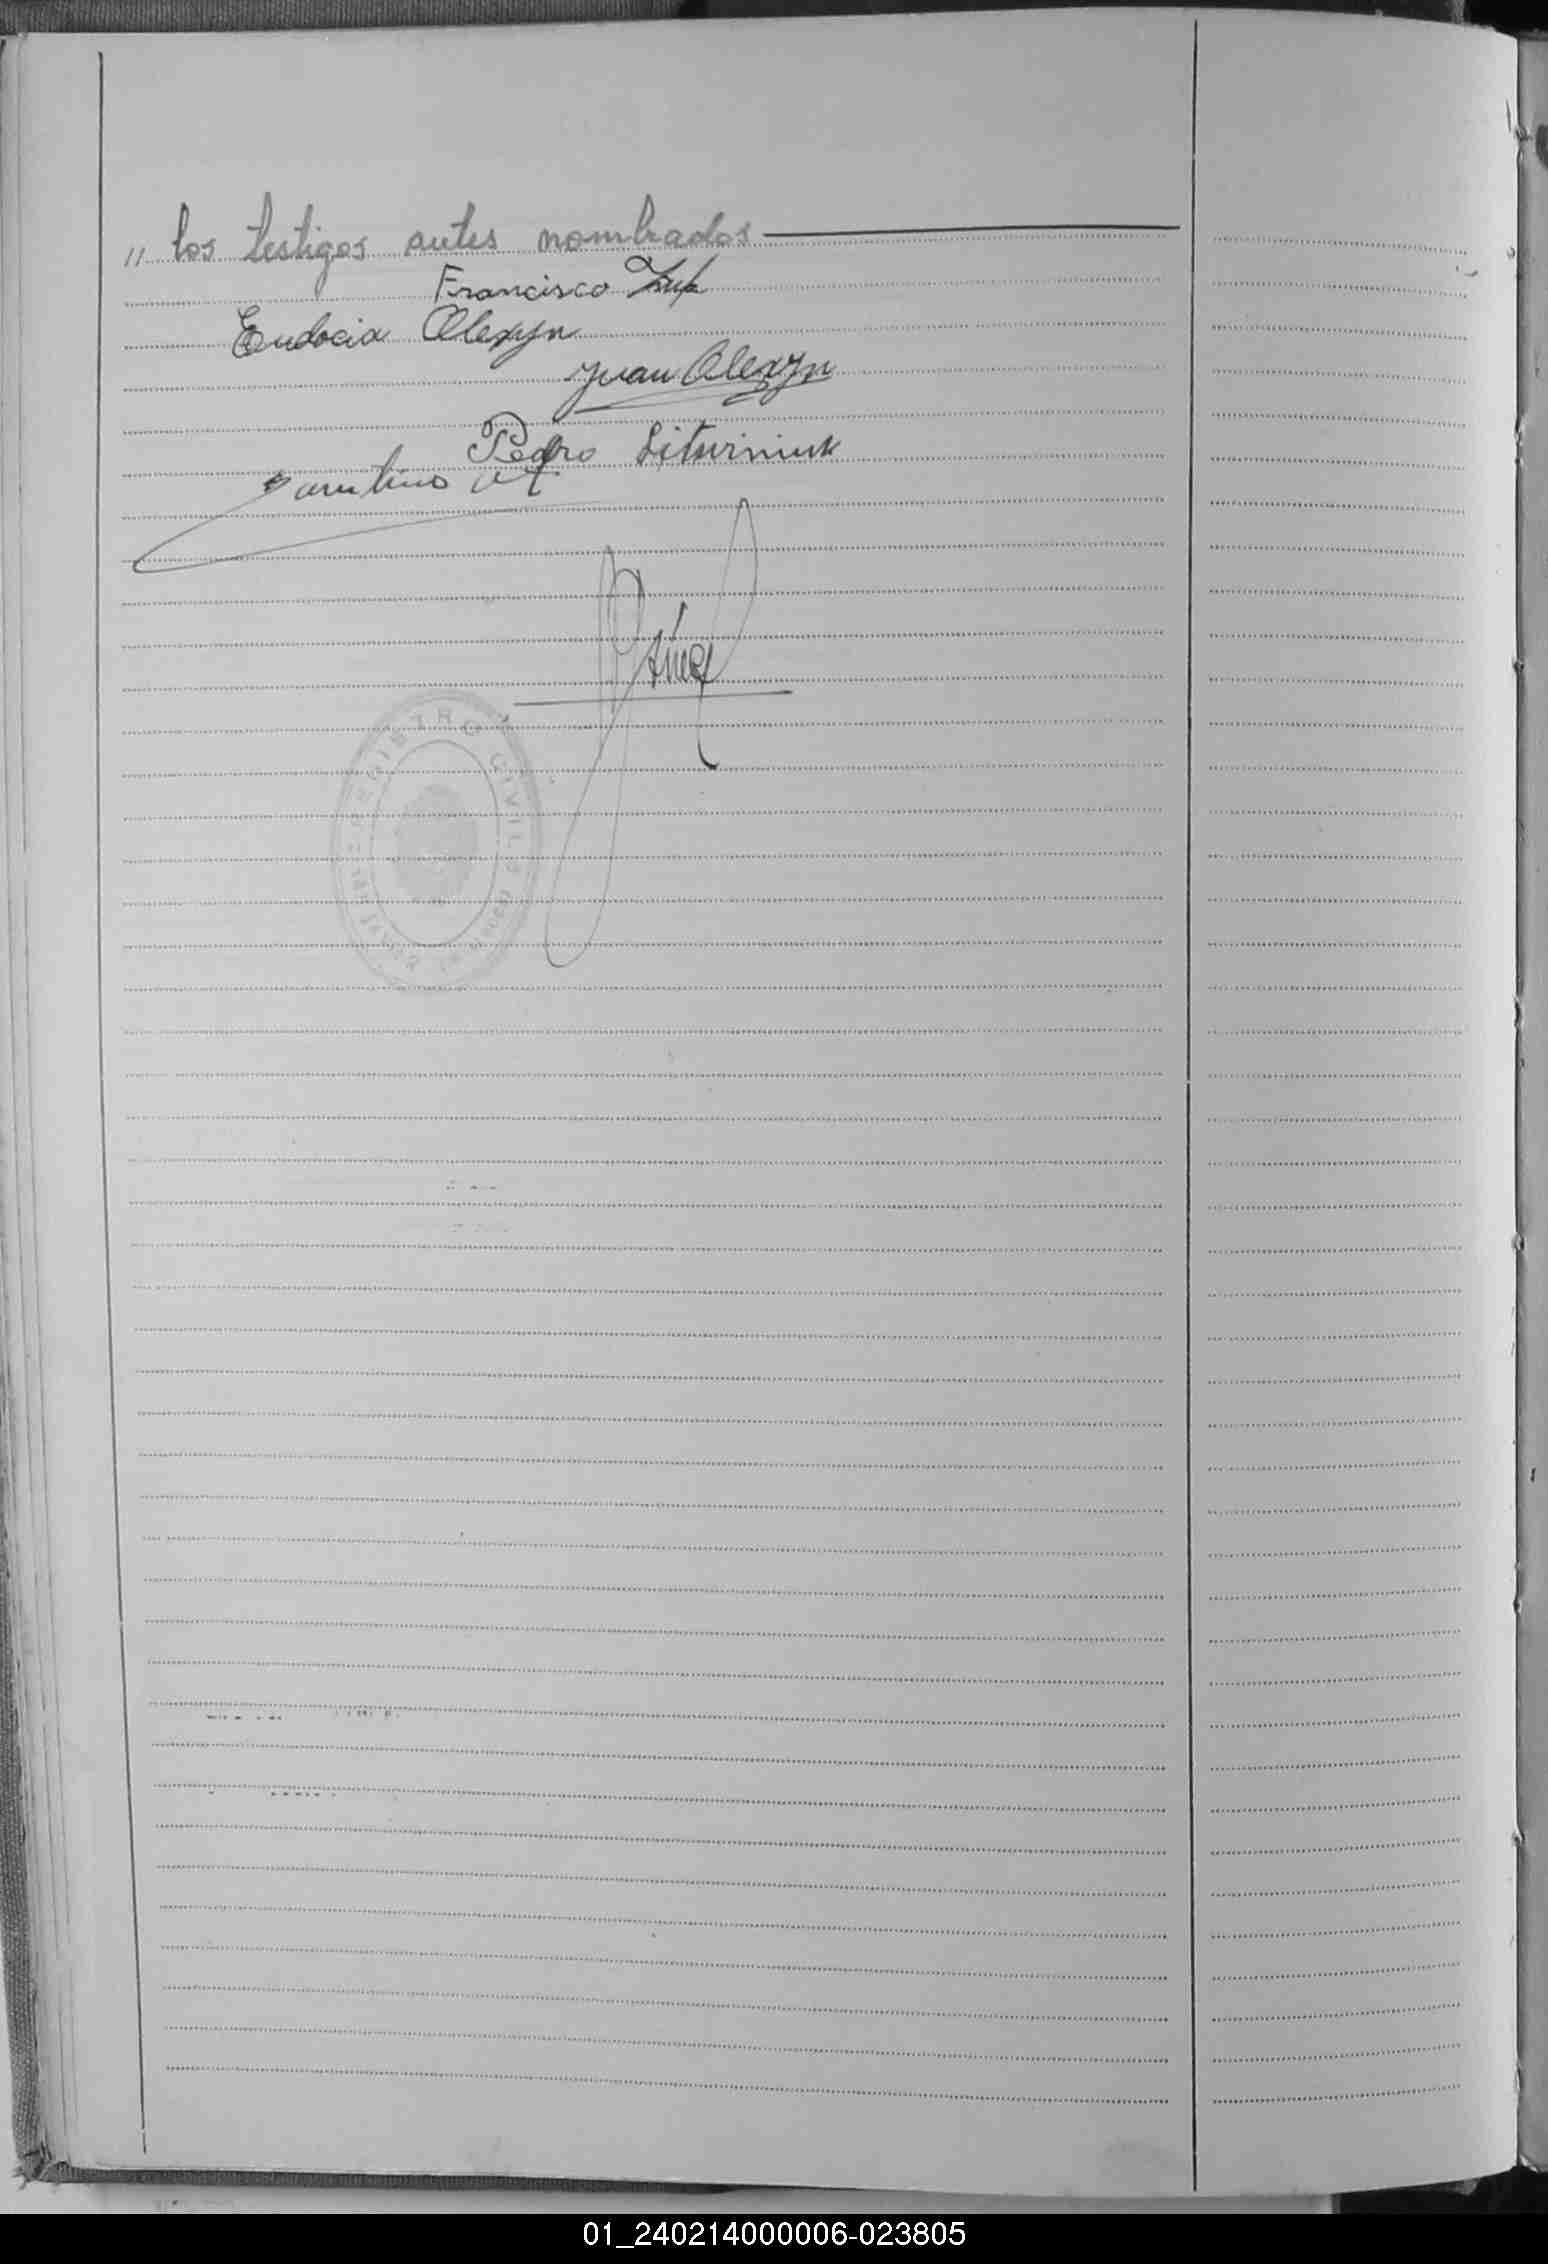 " los testigos antes nombrados
Francisco Zuk
Eudocia Olexyn
Juan Olexyn
Pedro Lituriniuk
REGISTRO CIVIL
01_240214000006-023805